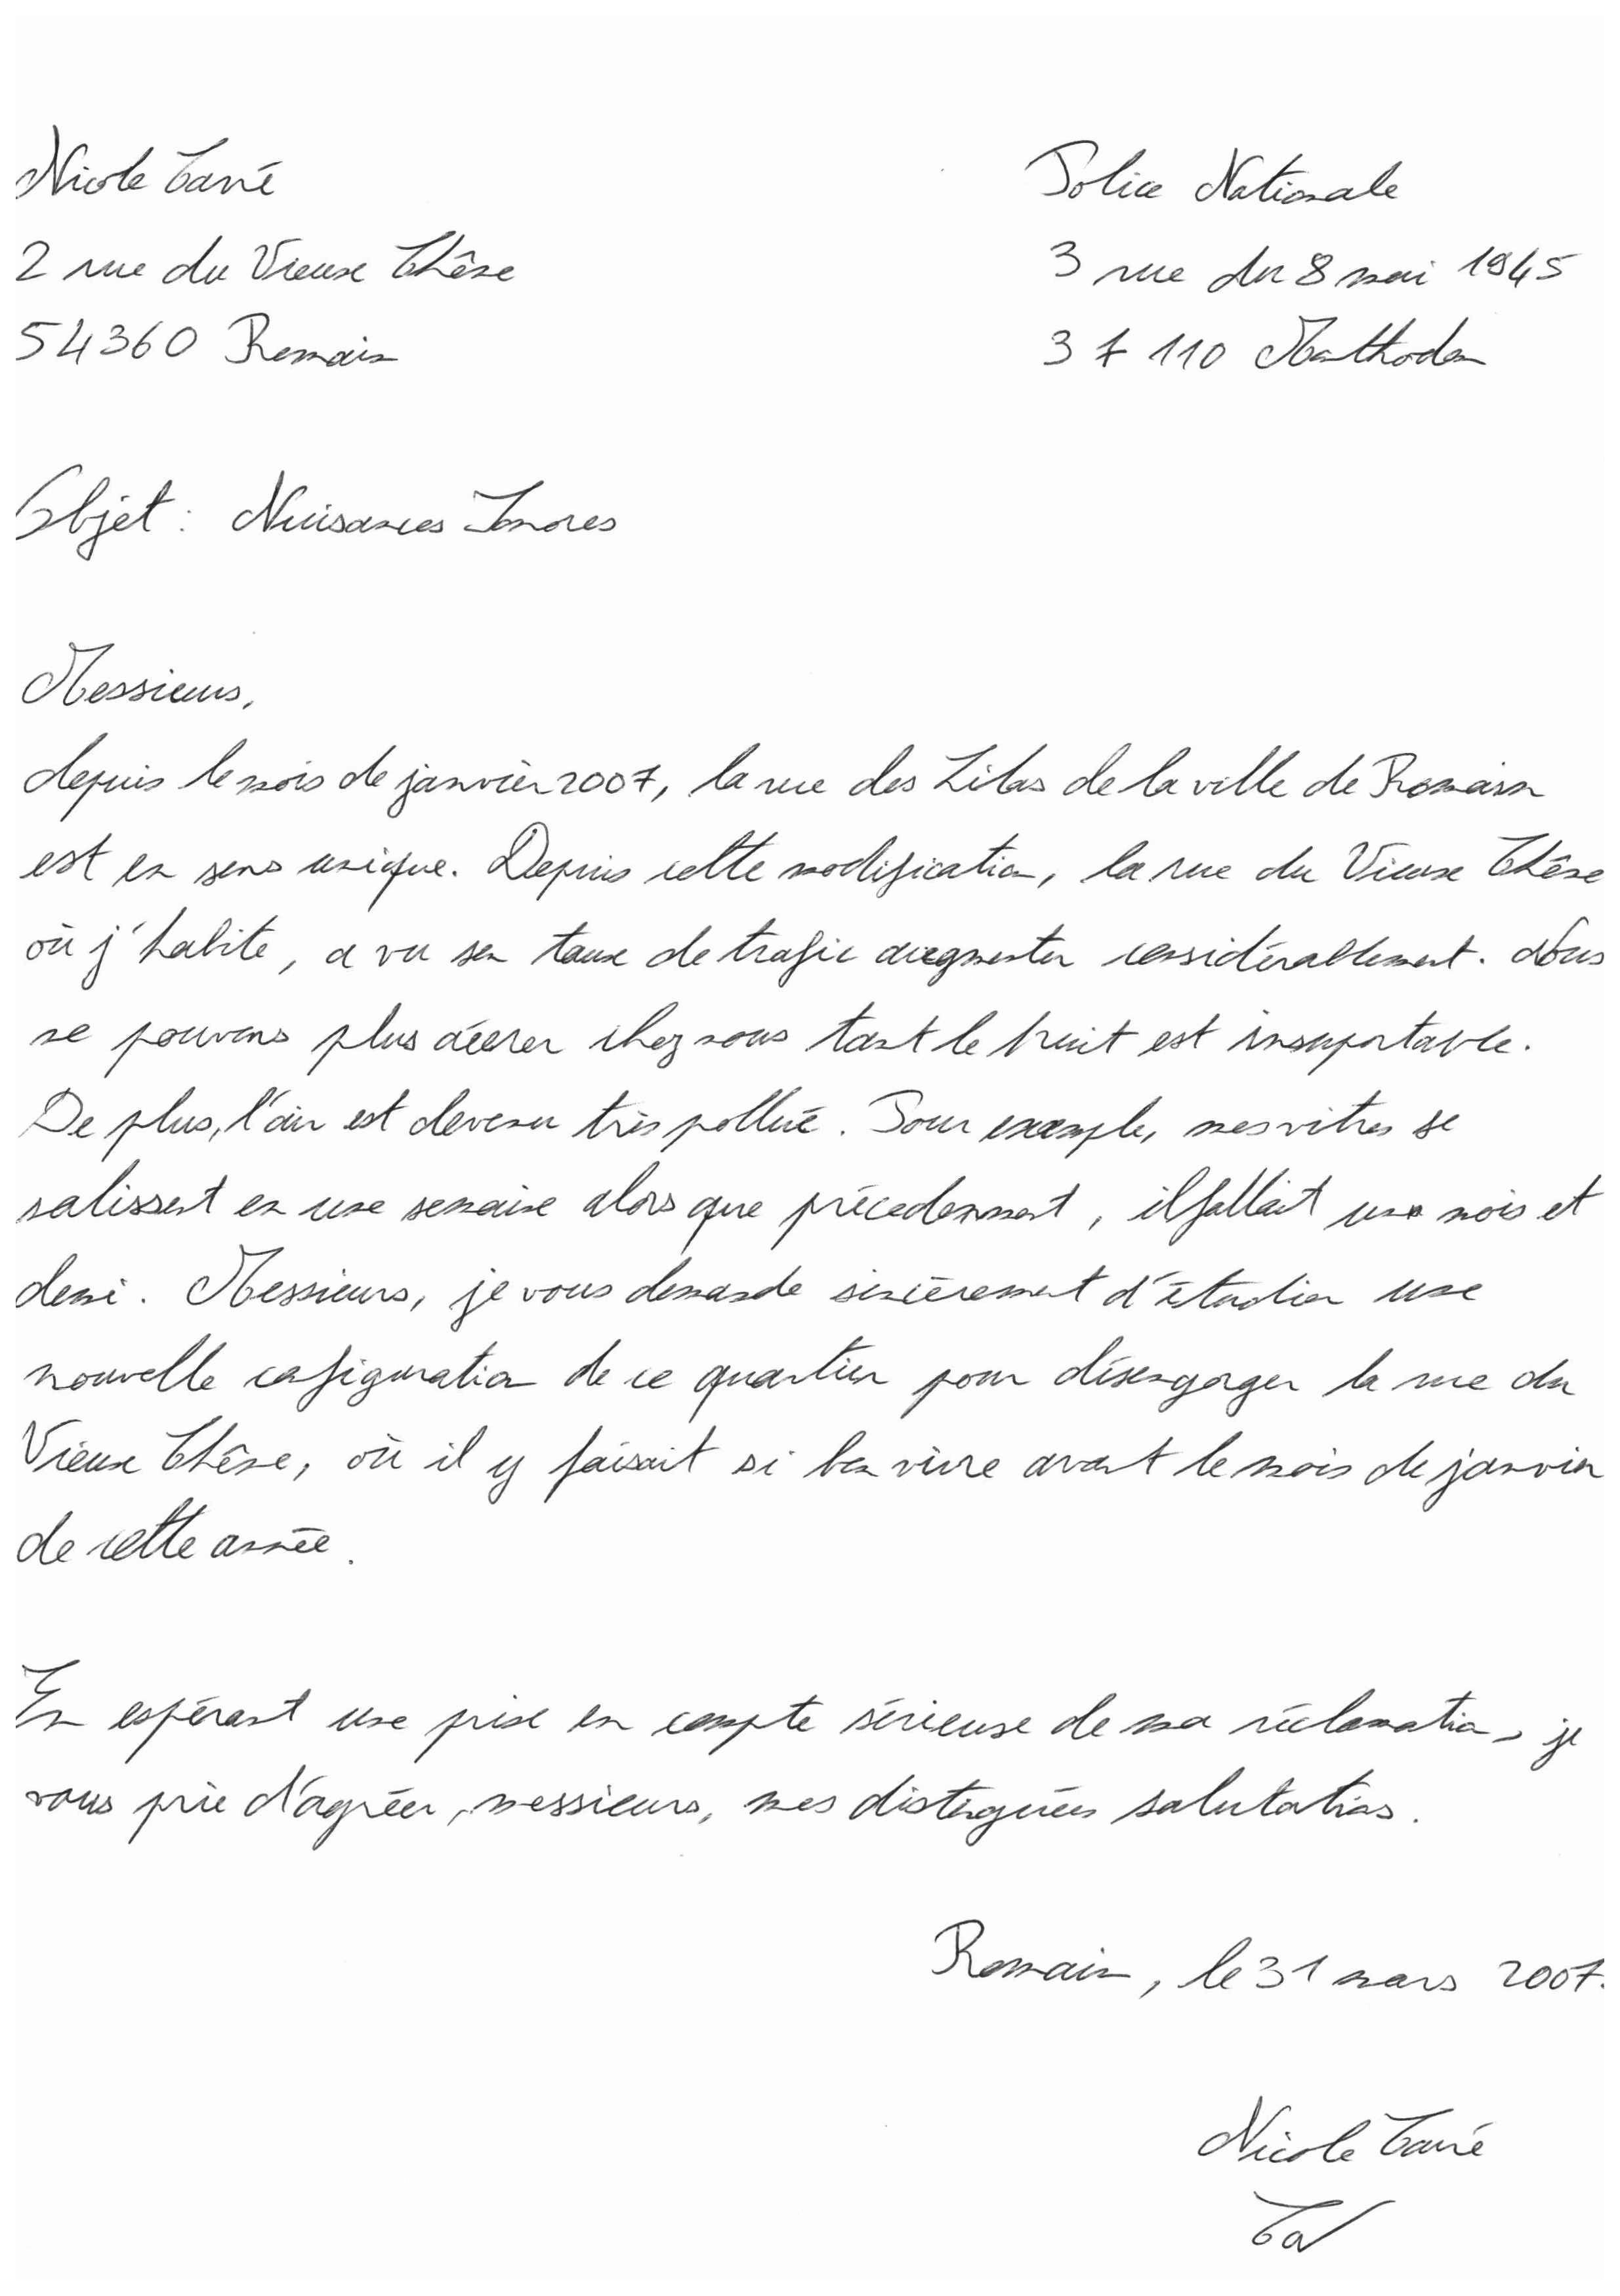 Nicole Carré
2 rue du Vieux Chêne
54360 Romain
Police Nationale
3 rue du 8 mai 1945
37 110 Monthodon
Objet : Nuisances Sonores
Messieurs,
depuis le mois de janvier 2007, la rue des Lilas de la ville de Romain
est en sens unique. Depuis cette modification, la rue du Vieux Chêne
où j'habite, a vu son taux de trafic augmenter considérablement. Nous
ne pouvons plus aérer chez nous tant le bruit est insupportable.
De plus, l'air est devenu très pollué. Pour exemple, mes vitres se
salissent en une semaine alors que précedemment, il fallait un mois et
demi. Messieurs, je vous demande sincèrement d'étudier une
nouvelle configuration de ce quartier pour désengorger la rue du
Vieux Chêne, où il y faisait si bon vivre avant le mois de janvier
de cette année.
En espérant une prise en compte sérieuse de ma réclamation, je
vous prie d'agréer, messieurs, mes distinguées salutations.
Romain, le 31 mars 2007.
Nicole Carré